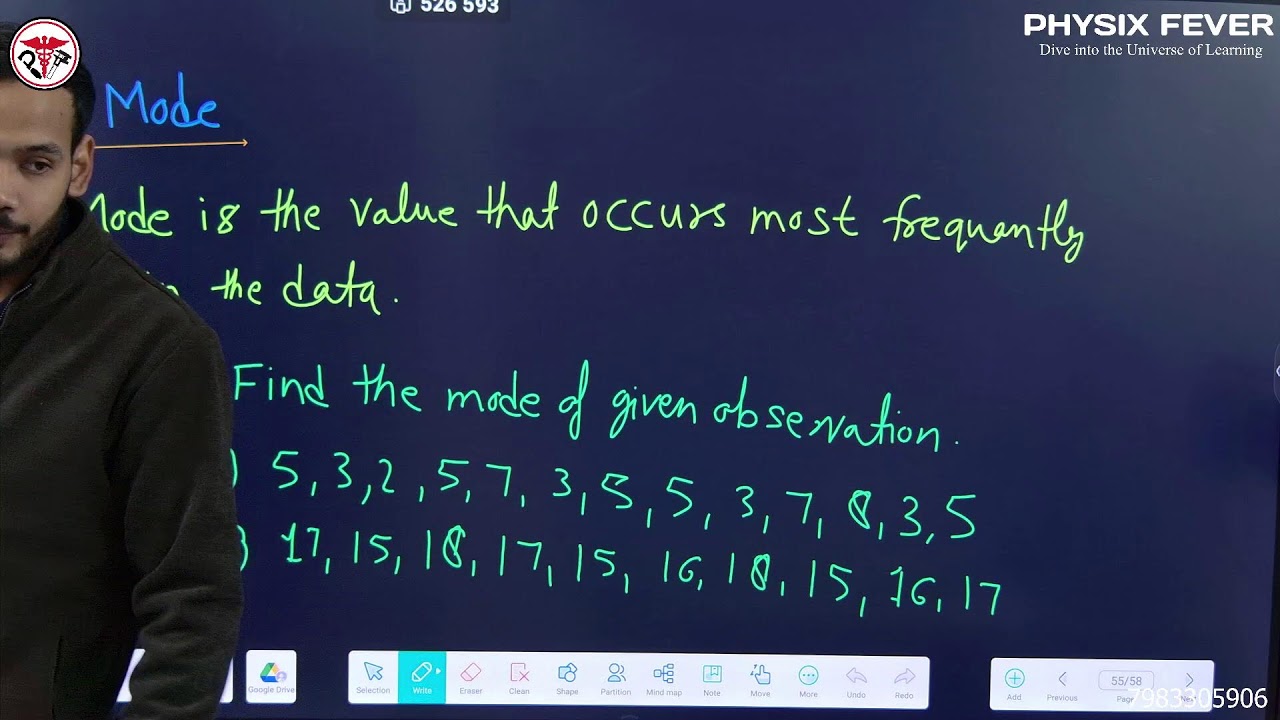 526 593
PHYSIX FEVER
Dive into the Universe of Learning
Mode
Mode is the value that occurs most frequantly
in the data.
Find the mode of given observation.
) 5, 3, 2, 5, 7, 3, 5, 5, 3, 7, 8, 3, 5
) 17, 15, 18, 17, 15, 16, 18, 15, 16, 17
Google Drive
Selection Write Eraser Clean Shape Partition Mind map Note Move More Undo Redo
Add Previous 55/58 Page Next
7983305906